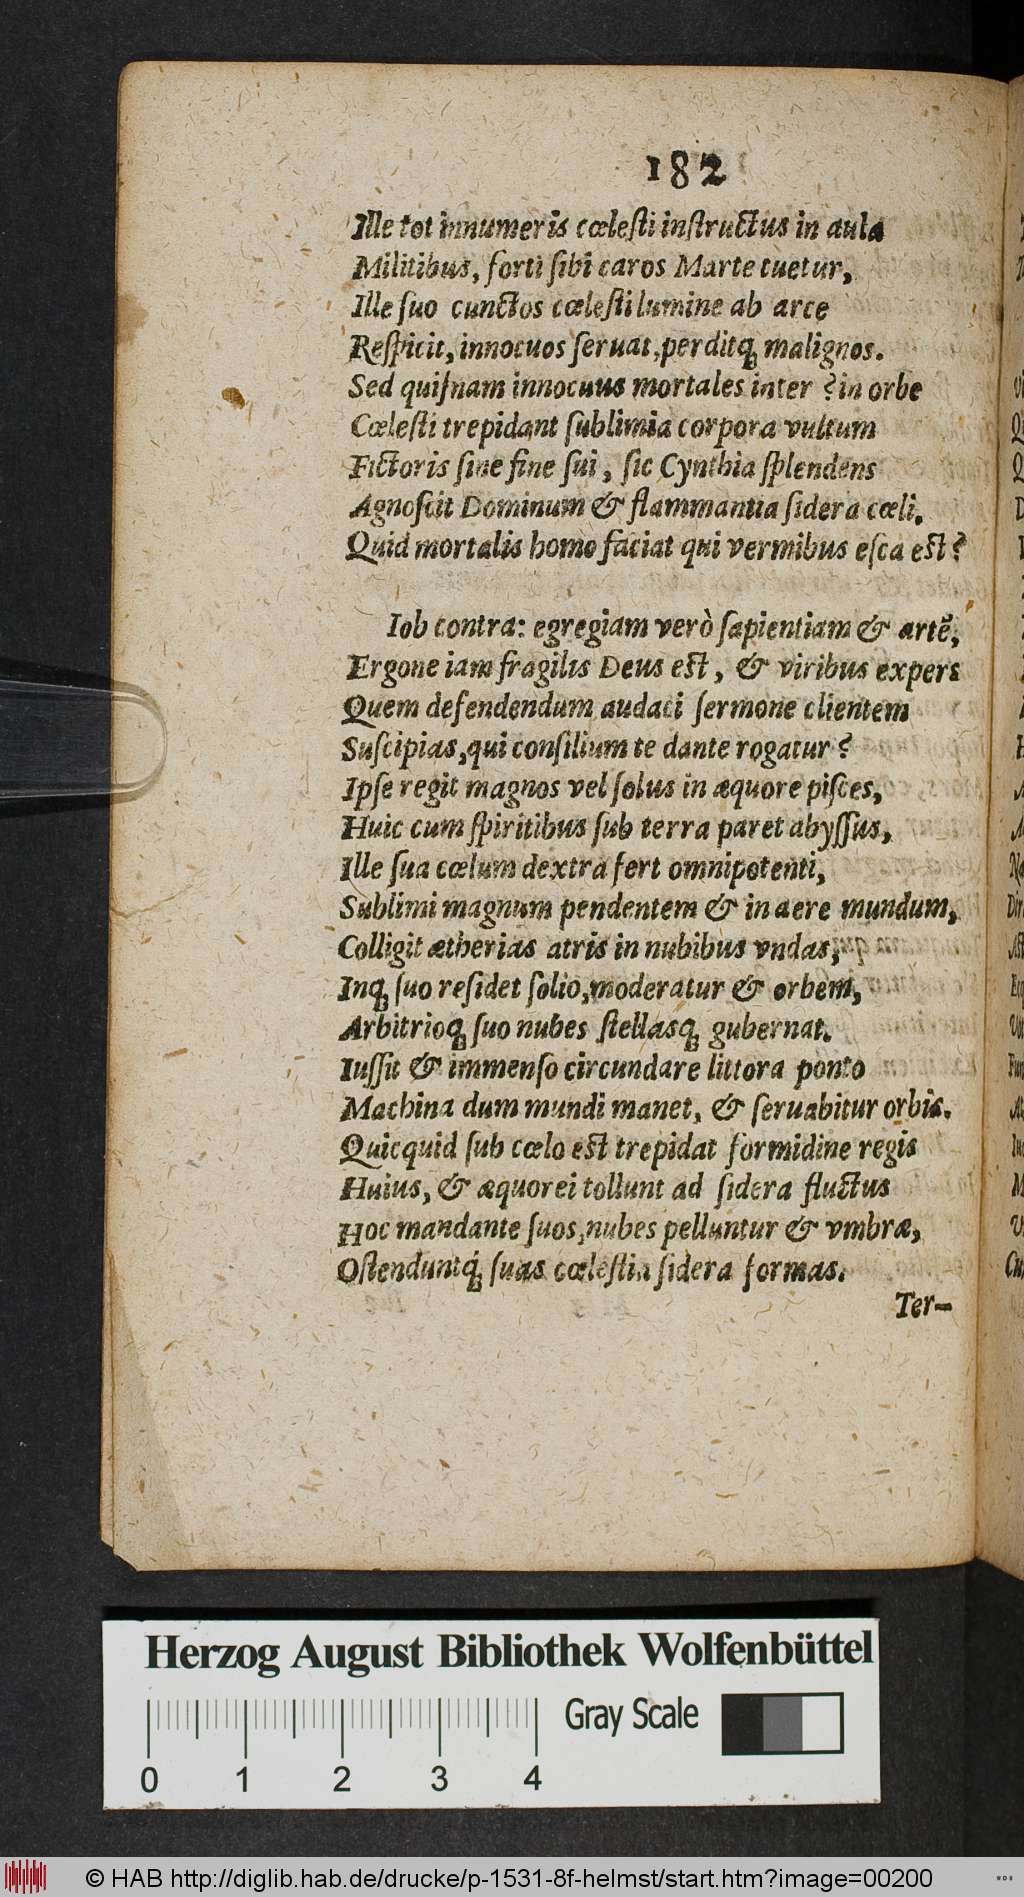 182
Ille tot innumeris cœleſti inſtructus in aula
Militibus, forti ſibi caros Marte tuetur,
Ille ſuo cunctos cœleſti lumine ab arce
Reſpicit, innocuos ſeruat, perditq́; malignos.
Sed quiſnam innocuus mortales inter ? in orbe
Cœleſti trepidant ſublimia corpora vultum
Fictoris ſine fine ſui, ſic Cynthia ſplendens
Agnoſcit Dominum & flammantia ſidera cœli.
Quid mortalis homo faciat qui vermibus eſca eſt?
Iob contra: egregiam verò ſapientiam & artē,
Ergone iam fragilis Deus eſt, & viribus expers
Quem defendendum audaci ſermone clientem
Suſcipias, qui conſilium te dante rogatur?
Ipſe regit magnos vel ſolus in æquore piſces,
Huic cum ſpiritibus ſub terra paret abyſſus,
Ille ſua cœlum dextra fert omnipotenti,
Sublimi magnum pendentem & in aere mundum,
Colligit ætherias atris in nubibus vndas,
Inq; ſuo reſidet ſolio, moderatur & orbem,
Arbitrioq; ſuo nubes ſtellasq; gubernat.
Iuſſit & immenſo circundare littora ponto
Machina dum mundi manet, & ſeruabitur orbis.
Quicquid ſub cœlo eſt trepidat formidine regis
Huius, & æquorei tollunt ad ſidera fluctus
Hoc mandante ſuos, nubes pelluntur & vmbræ,
Oſtenduntq́; ſuas cœleſtia ſidera formas.
Ter-
Herzog August Bibliothek Wolfenbüttel
Gray Scale
0 1 2 3 4
© HAB http://diglib.hab.de/drucke/p-1531-8f-helmst/start.htm?image=00200